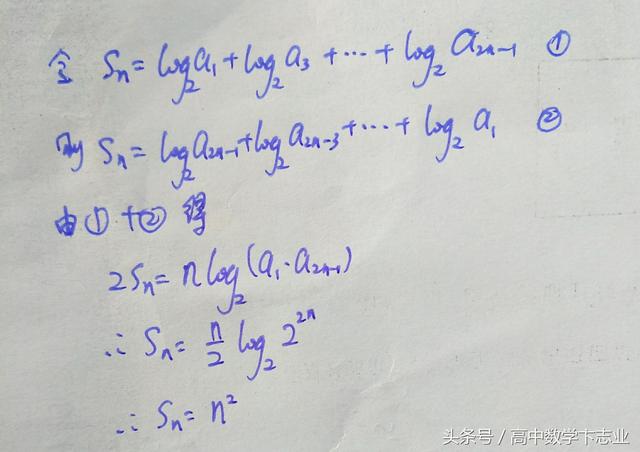 令 Sₙ = log₂a₁ + log₂a₃ + ⋯ + log₂a₂ₙ₋₁ ①
则 Sₙ = log₂a₂ₙ₋₁ + log₂a₂ₙ₋₃ + ⋯ + log₂a₁ ②
由①+②得
2Sₙ = n log₂(a₁·a₂ₙ₋₁)
∴ Sₙ = n/2 log₂2²ⁿ
∴ Sₙ = n²
头条号 / 高中数学卞志业